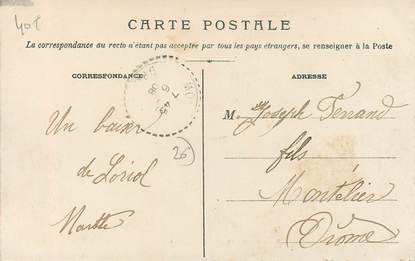 40t
CARTE POSTALE
La correspondance au recto n'étant pas acceptée par tous les pays étrangers, se renseigner à la Poste
CORRESPONDANCE
Un baiser
de Loriol
Marthe
26
7 45
6
08
ADRESSE
M. Joseph Ferrand
fils
Montelier
Drôme